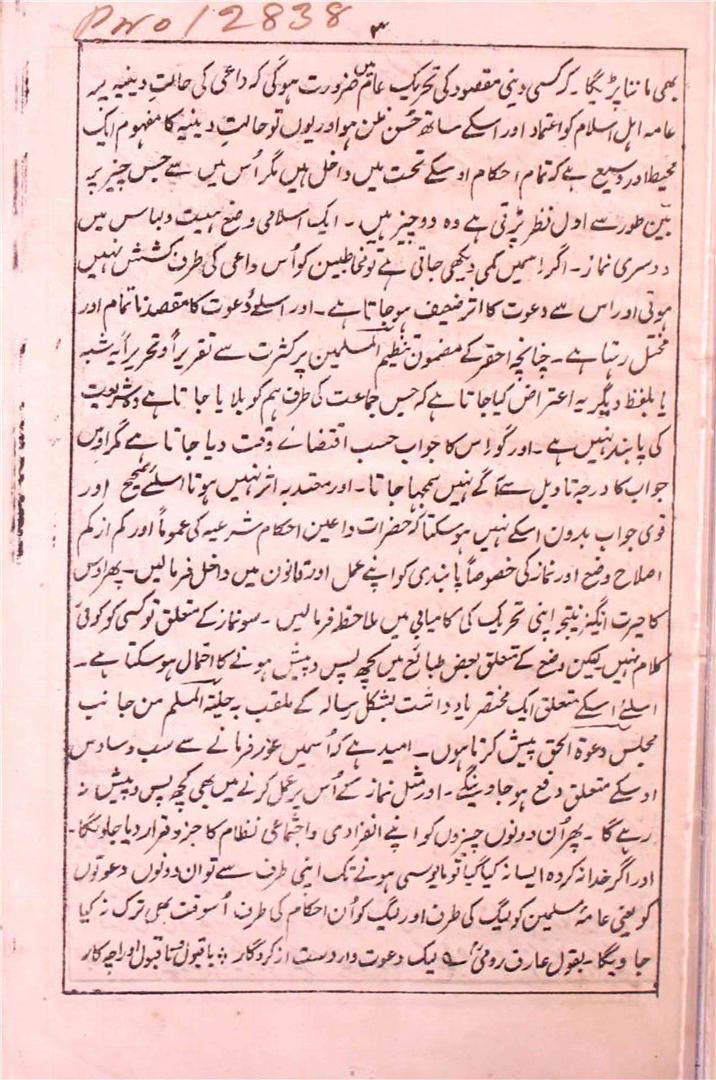 P No 12838
۳
بھی ماننا پڑیگا۔ کہ کسی دینی مقصود کی تحریک عام میں ضرورت ہوگی کہ داعی کی حالتِ دینیہ پر
عامہ اہل اسلام کو اعتماد اور اسکے ساتھ حُسن ظن ہو اور یوں تو حالتِ دینیہ کا مفہوم ایک
محیط اور وسیع ہے کہ تمام احکام اوسکے تحت میں داخل ہیں مگر اُس میں سے جس چیز پر
بیّن طور سے اول نظر پڑتی ہے وہ دو چیز ہیں۔ ایک اسلامی وضع ہیٔت ولباس میں
دوسری نماز۔ اگر اِسمیں کمی دیکھی جاتی ہے تو مخاطبین کو اُس داعی کی طرف کشش نہیں
ہوتی اور اس سے دعوت کا اثر ضعیف ہو جاتا ہے۔ اور اسلئے دعوت کا مقصد ناتمام اور
مختل رہتا ہے۔ چنانچہ احقر کے مضمون تنظیم المسلمین پر کثرت سے تقریراً و تحریراً یہ شبہ
یا بلفظ دیگر یہ اعتراض کیا جاتا ہے کہ جس جماعت کی طرف ہم کو بلایا جاتا ہے وہ شریعت
کی پابند نہیں ہے۔ اور گو اِس کا جواب حسب اقتضائے وقت دیا جاتا ہے مگر اوس
جواب کا درجہ تاویل سے آگے نہیں سمجھا جاتا۔ اور معتد بہ اثر نہیں ہوتا اسلئے صحیح اور
قوی جواب بدون اسکے نہیں ہو سکتا کہ حضرات داعین احکام شرعیہ کی عموماً اور کم از کم
اصلاح وضع اور نماز کی خصوصاً پابندی کو اپنے عمل اور قانون میں داخل فرمالیں۔ پھر اوس
کا حیرت انگیز نتیجہ اپنی تحریک کی کامیابی میں ملاحظہ فرمالیں۔ سو نماز کے متعلق تو کسی کو کوئی
کلام نہیں لیکن وضع کے متعلق بعض طبائع میں کچھ پس و پیش ہونے کا احتمال ہو سکتا ہے۔
اسلئے اسکے متعلق ایک مختصر یادداشت بشکل رسالہ کے ملقب بہ حلیۃ المسلم من جانب
مجلس دعوۃ الحق پیش کرتا ہوں۔ امید ہے کہ اُسمیں غور فرمانے سے سب وساوس
اوسکے متعلق دفع ہو جاوینگے۔ اور مثل نماز کے اُس پر عمل کرنے میں بھی کچھ پس و پیش نہ
رہے گا۔ پھر اُن دونوں چیزوں کو اپنے انفرادی واجتماعی نظام کا جزو قرار دیا جاویگا۔
اور اگر خدا نہ کردہ ایسا نہ کیا گیا تو مایوسی ہونے تک اپنی طرف سے تو ان دونوں دعوتوں
کو یعنی عامۂ مسلمین کو لیگ کی طرف اور لیگ کو اُن احکام کی طرف اُسوقت بھی ترک نہ کیا
جاویگا۔ بقول عارف رومیؒ لیک دعوت وارد ست از کردگار ؛ با قبول نا قبول اورا چہ کار